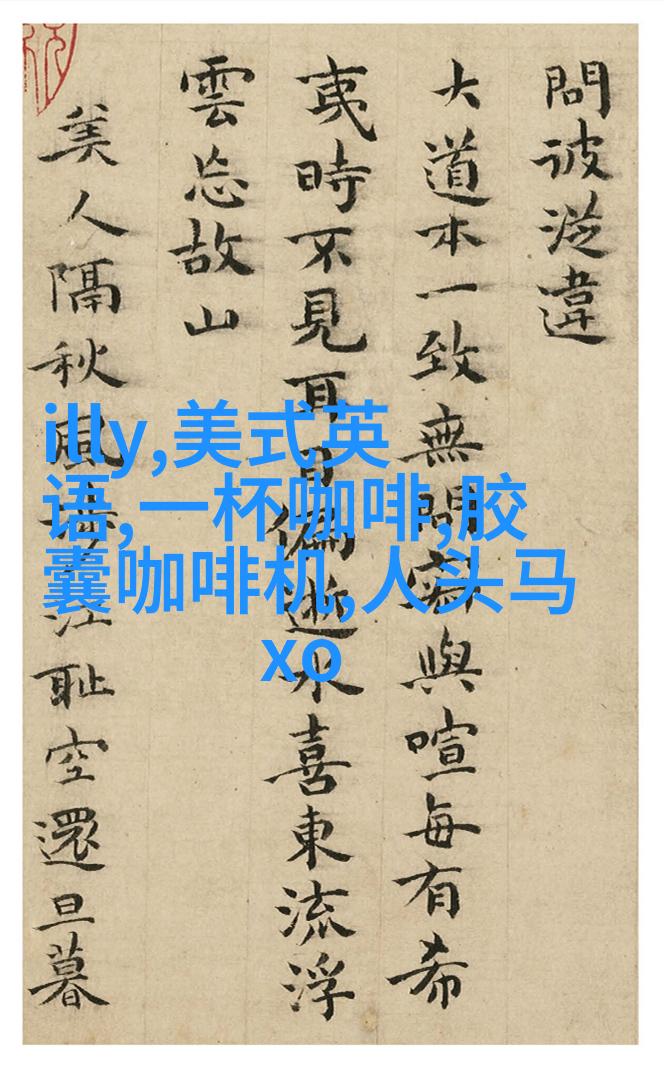 問彼從違
大道本一致無問寂與喧每有希
夷時不見耳目偏逝水喜東流浮
雲忘故山
美人隔秋風江耻空還旦暮
illy,美式英
语,一杯咖啡,胶
囊咖啡机,人头马
xo